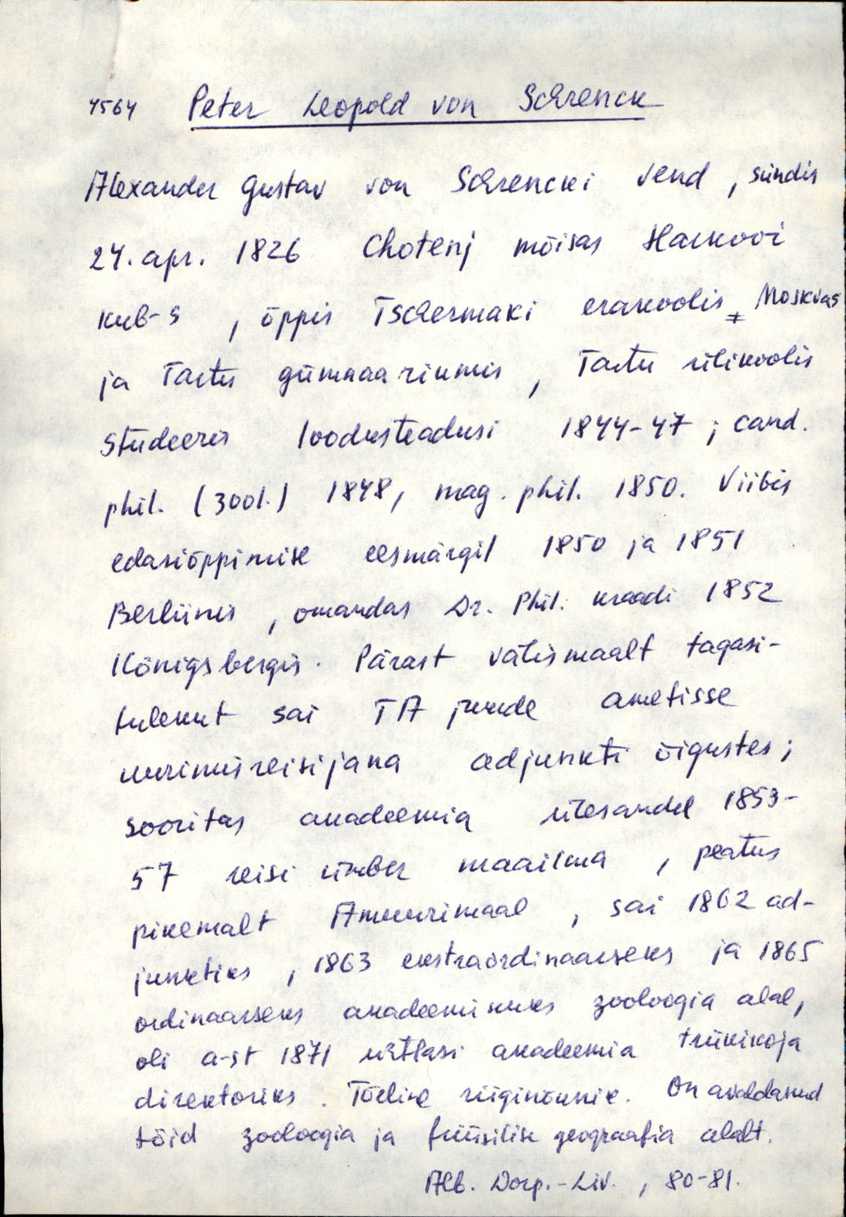 4564 Peter Leopold von Schrenck
Alexander Gustav von Schrencki vend, sündis
24. apr. 1826 Chotenj mõisas Harkovi
kub-s, õppis Tschermaki erakoolis Moskvas
ja Tartu gümnaasiumis, Tartu ülikoolis
studeeris loodusteadusi 1844-47; cand.
phil. (zool.) 1848, mag. phil. 1850. Viibis
edasiõppimise eesmärgil 1850 ja 1851
Berliinis, omandas Dr. Phil. kraadi 1852
Königsbergis. Pärast välismaalt tagasi-
tulekut sai TA juurde ametisse
uurimisreisijana adjunkti õigustes;
sooritas akadeemia ülesandel 1853-
57 reisi ümber maailma, peatus
pikemalt Amuurimaal, sai 1862 ad-
junktiks, 1863 ekstraordinaarseks ja 1865
ordinaarseks akadeemikuks zooloogia alal,
oli a-st 1871 ühtlasi akadeemia trükikoja
direktoriks. Tõeline riiginõunik. On avaldanud
töid zooloogia ja füüsilise geograafia alalt.
Alb. Dorp.-Liv., 80-81.